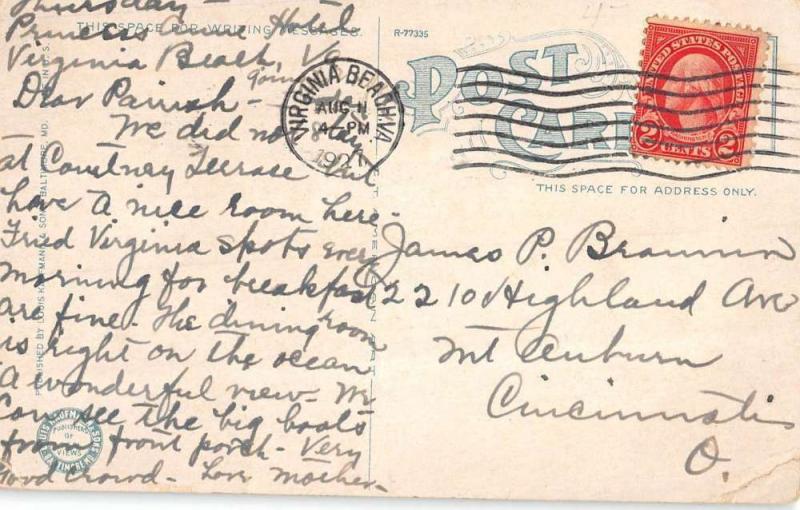 Thursday -
Princess Anne Hotel
Virginia Beach, Va
Dear Parrish -
We did not
at Courtney Terrace but
have a nice room here.
Fried Virginia spots every
morning for breakfast
are fine. The dining room
is right on the ocean
A wonderful view - We
can see the big boats
from front porch. Very
good crowd. Love Mother.
THIS SPACE FOR WRITING MESSAGES
R-77335
POST
CARD
VIRGINIA BEACH, VA.
AUG 11
4 PM
192
UNITED STATES POSTAGE
2 CENTS 2
THIS SPACE FOR ADDRESS ONLY.
James P.
2210 Highland Ave
Mt Auburn
Cincinnati
O.
PUBLISHED BY LOUIS KAUFMANN & SONS, BALTIMORE, MD.
PUBLISHERS
OF
VIEWS